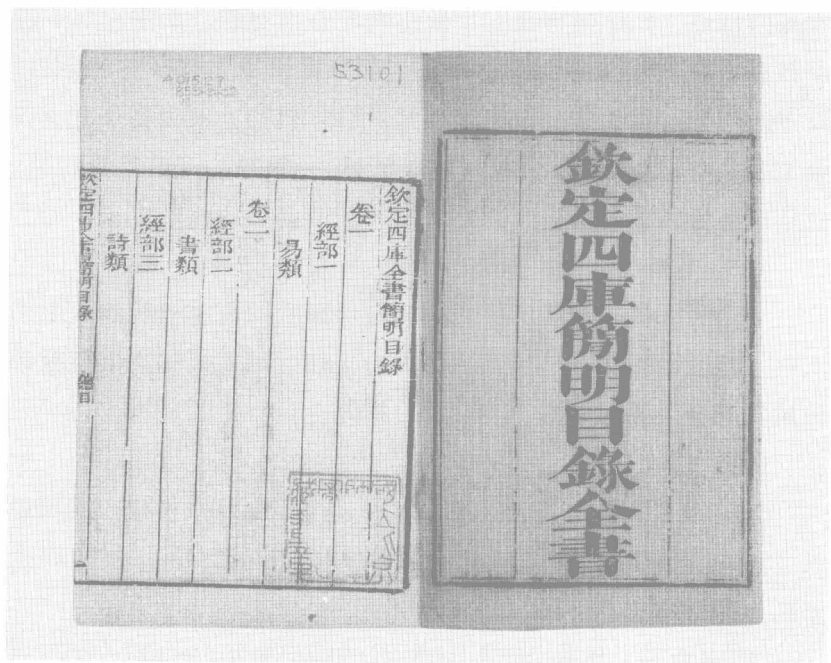 欽定四庫簡明目錄全書
53101
欽定四庫全書簡明目錄
卷一
經部一
易類
卷二
經部二
書類
經部三
詩類
欽定四庫全書簡明目錄 總目 一